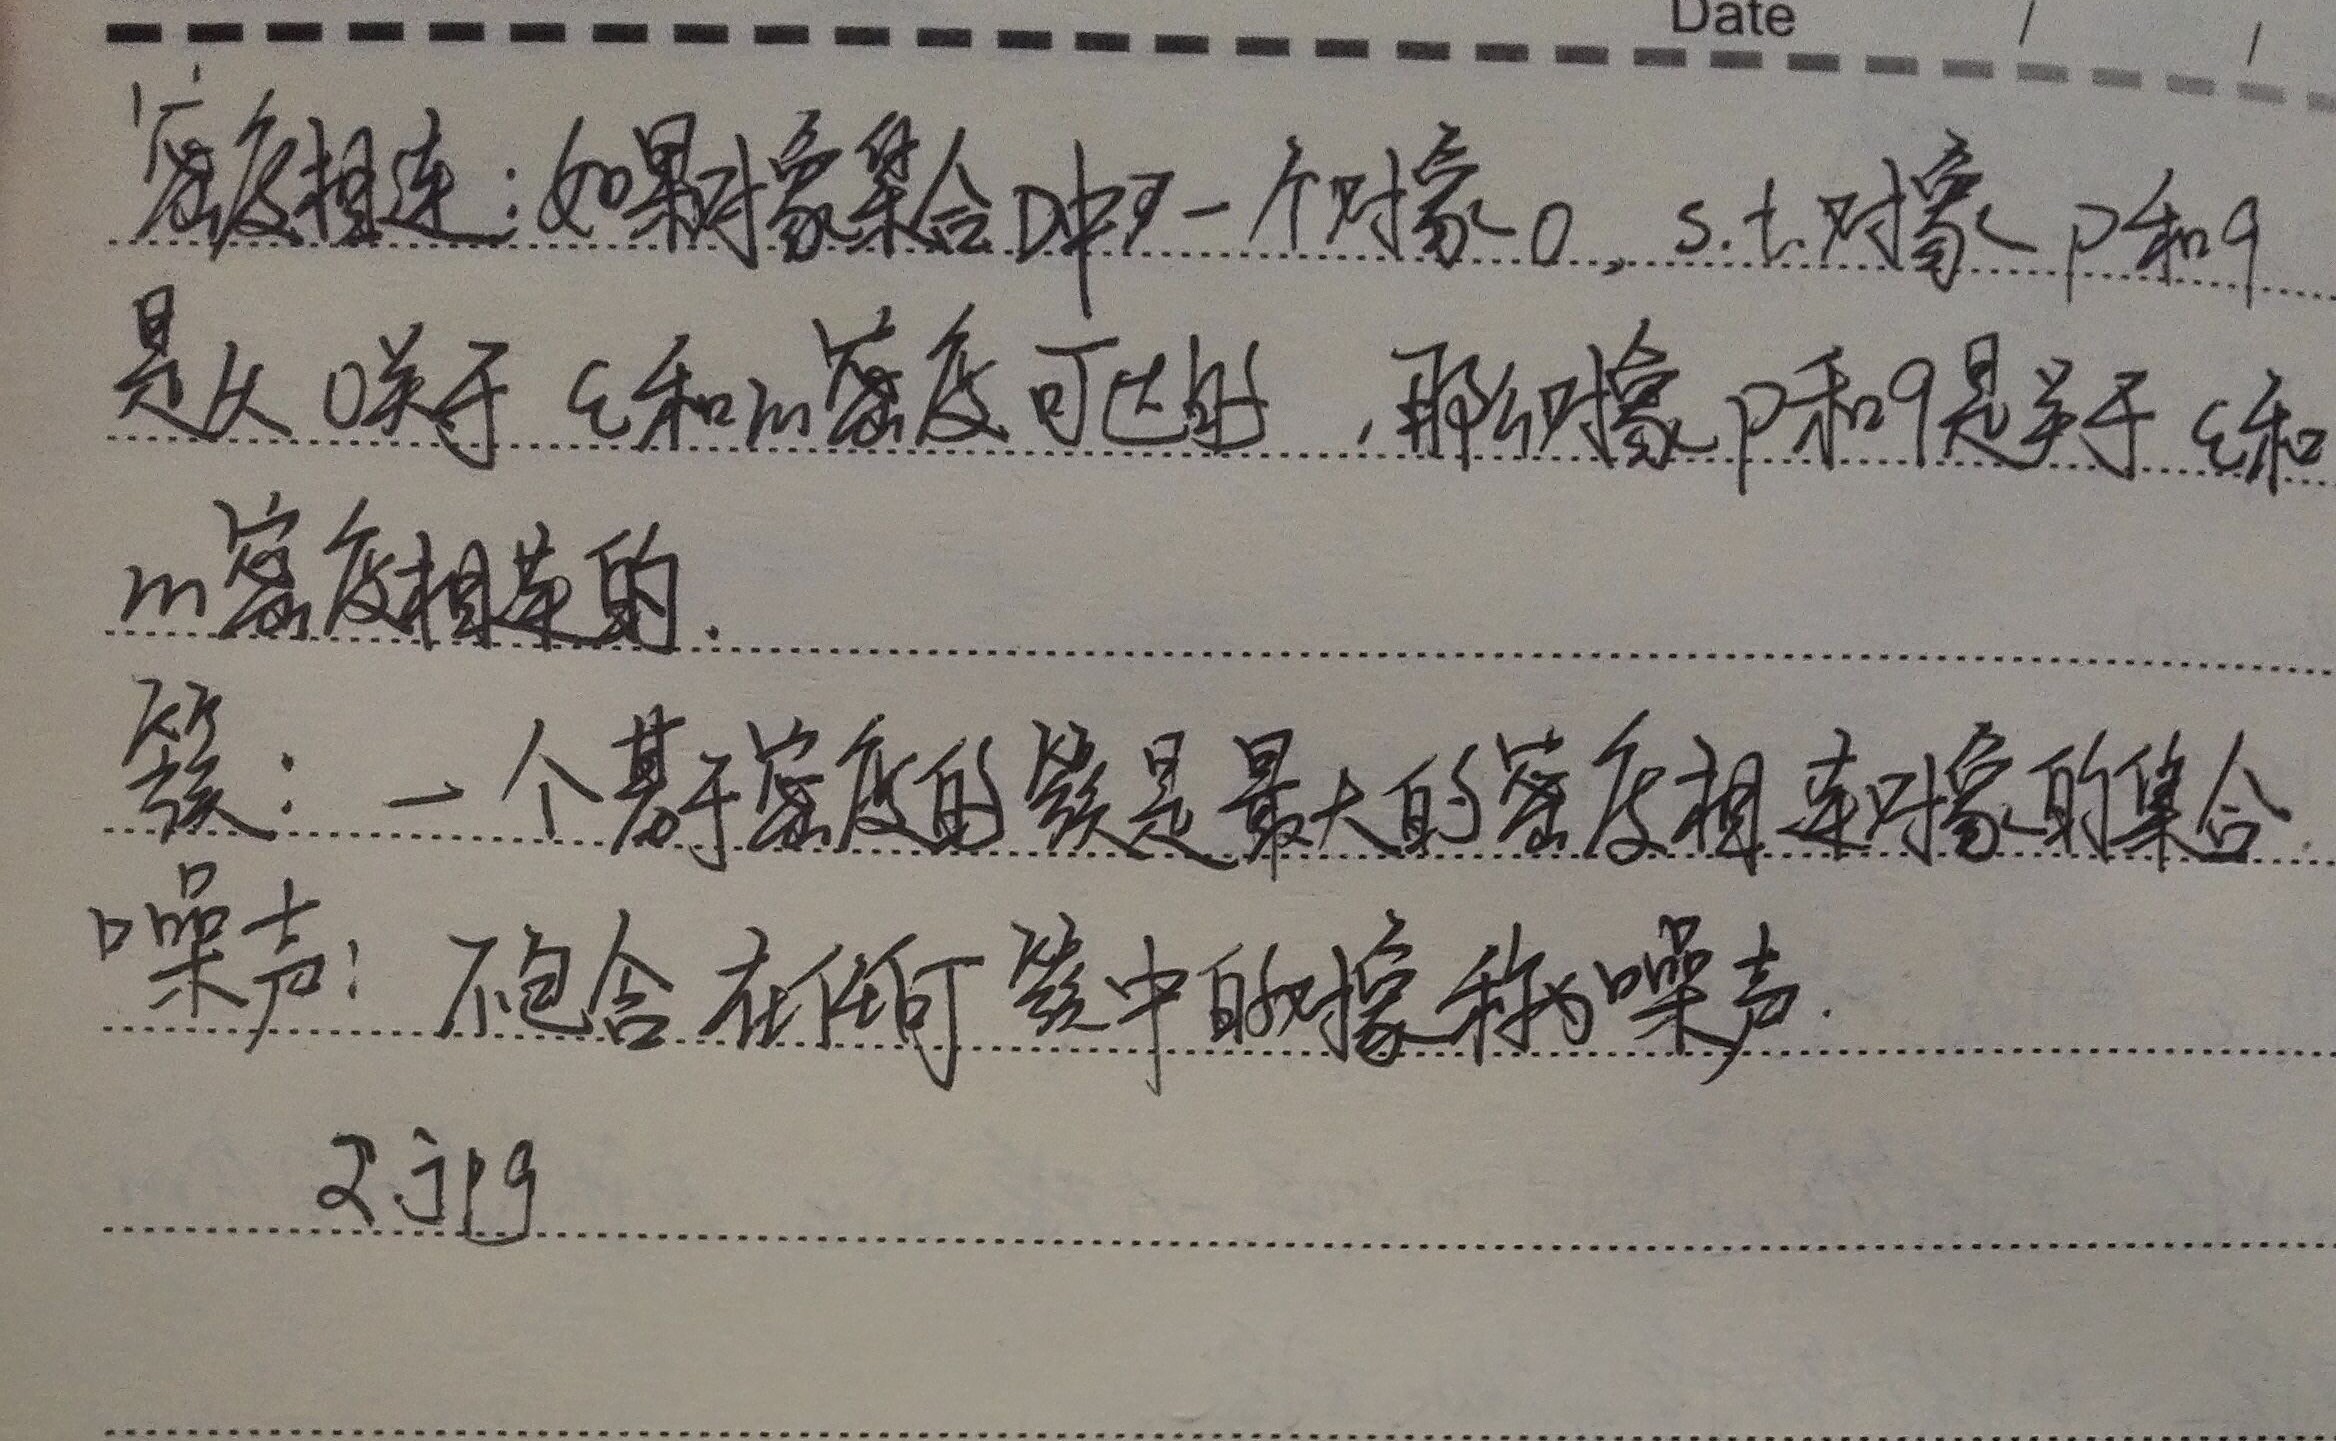 Date / /
密度相连:如果对象集合D中一个对象o,s.t.对象p和q
是从o关于ε和m密度可达的,那么对象p和q是关于ε和
m密度相连的.
簇:一个基于密度的簇是最大的密度相连对象的集合.
噪声:不包含在任何簇中的对象称为噪声.
2.jpg